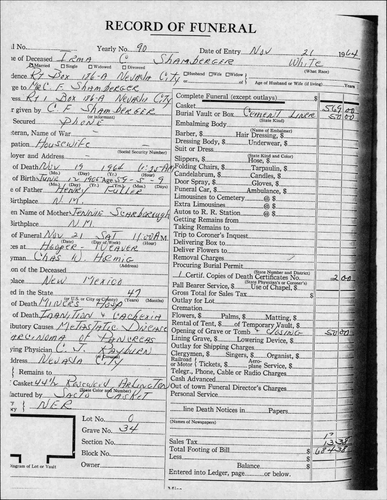 RECORD OF FUNERAL
l No. Yearly No. 90 Date of Entry Nov 21 1964
e of Deceased Irma C Shamberger White
Married Single Widowed Divorced Husband Wife Widow (What Race)
Ry Box 186-A Nevada City Age of Husband or Wife (if living)
ge to Mr C F. Shamberger
ess Ry 1 Box 186-A Nevada City
r given by C F Shamberger
(or informant)
Phone
teran, War of
pation Housewife
(Social Security Number)
loyer and Address
of Death Nov 19 1964 6:35 AM
of Birth June 12 1905 59-5-9
e of Father Henry Fuller
Birthplace N.M.
en Name of Mother Jennie Scarborough
Birthplace N.M.
of Funeral Nov 21 Sat 11:00 AM
es at Hooper-Weaver
yman Chas W. Armig
on of the Deceased
place New Mexico
ed in the State 47
of Death Miners Hosp
of Death Inanition & Cachexia
ibutory Causes Metastatic Disease
Carcinoma of Pancreas
ying Physician C. J. Rayburn
ddress Nevada City
Remains to
Casket 449 Rosewen Arlington
actured by Sacto Casket
NER
Lot No. 6
Grave No. 34
Section No.
Block No.
Owner
Diagram of Lot or Vault
Complete Funeral (except outlays) $
Casket 569.00
Burial Vault or Box Cement Liner 50.00
(State Kind)
Embalming Body
(Name of Embalmer)
Barber, $ Hair Dressing, $
Dressing Body, $ Underwear, $
Suit or Dress
(State Kind and Color)
Slippers, $ Hose, $
Folding Chairs, $ Tarpaulin, $
Candelabrum, $ Candles, $
Door Spray, $ Gloves, $
Funeral Car, $ Ambulance, $
Limousines to Cemetery @ $
Extra Limousines @ $
Autos to R. R. Station @ $
Getting Remains from
Taking Remains to
Trip to Coroner's Inquest
Delivering Box to
Deliver Flowers to
Removal Charges
Procuring Burial Permit
(State Number and District)
1 Certif. Copies of Death Certificates No. 2.00
(State Physician's or Coroner's)
Pall Bearer Service, $ Use of Chapel, $
Gross Total for Sales Tax $
Outlay for Lot
Cremation
Flowers, $ Palms, $ Matting, $
Rental of Tent, $ of Temporary Vault, $
Opening of Grave or Tomb & Closing 50.00
Lining Grave, $ Lowering Device, $
Outlay for Shipping Charges
Clergymen, $ Singers, $ Organist, $
Railroad or Motor Tickets, $ Aeroplane Service, $
Telegraph, Phone, Cable or Radio Charges
Cash Advanced
Out of town Funeral Director's Charges
Personal Service
line Death Notices in Papers
(Names of Newspapers)
Sales Tax
Total Footing of Bill $
Less
Balance $
Entered into Ledger, page